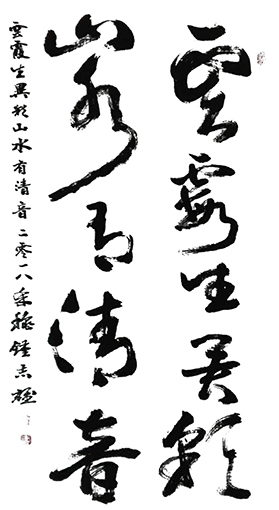 雲霞生異彩
山水有清音
雲霞生異彩山水有清音二零一八